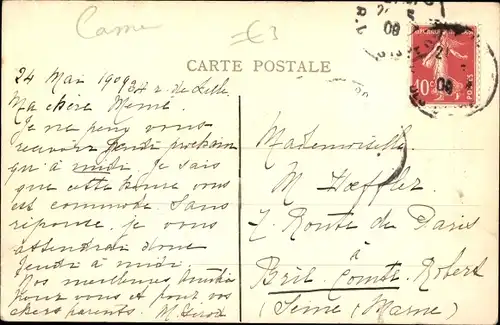 CARTE POSTALE
24 Mai 1909 34 r. de Lille
Ma chère Mémé
Je ne peux vous
recevoir jeudi prochain
qu'à midi. Je sais
que cette heure vous
est commode. Sans
réponse je vous
attendrai donc
Jeudi à midi.
Nos meilleures amitiés
pour vous et pour vos
chers parents.
10c
POSTES
Mademoiselle
M. Hoeffler
7. Route de Paris
à
Brie-Comte-Robert
(Seine &amp; Marne)